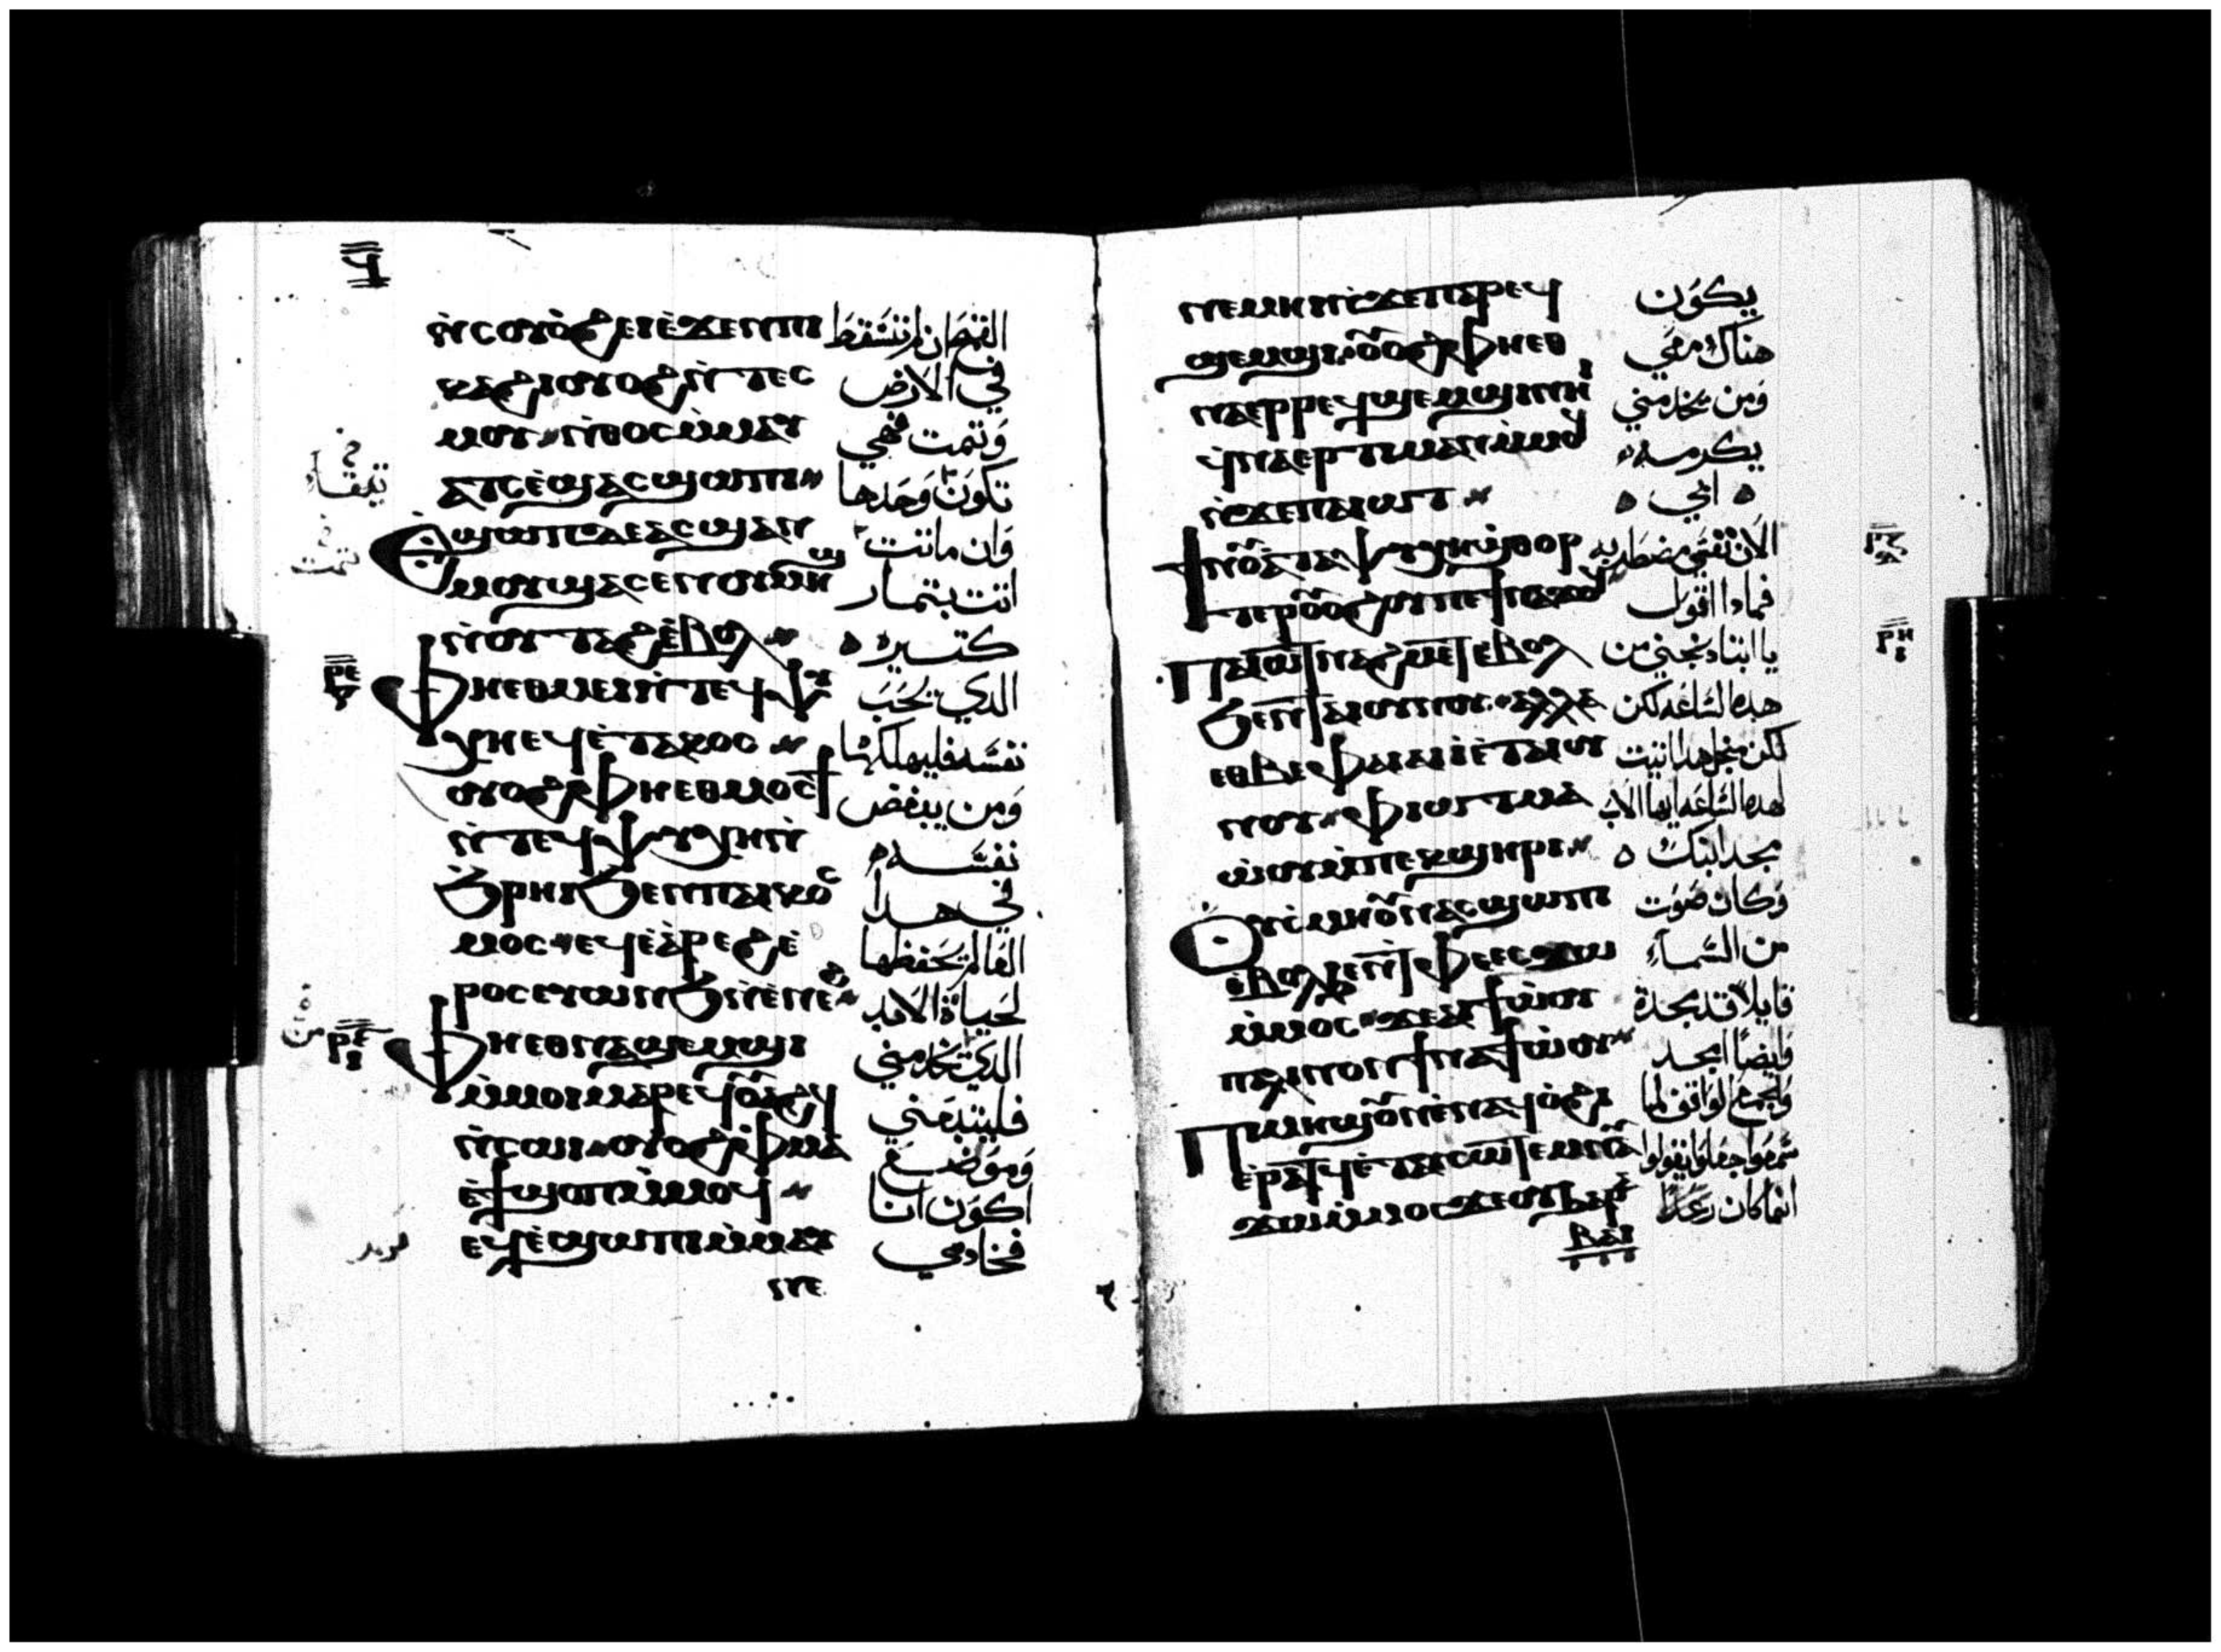 ϥ
ⲛ̀ⲥⲟⲩⲟ̀ϩⲉⲓⲉ̀ϫⲉⲛⲡⲓ القمح ان لم تسقط
ⲕⲁϩⲓⲟⲩⲟϩⲛ̀ⲧⲉⲥ في الارض
ⲙⲟⲩ ⲛ̀ⲑⲟⲥⲙ̀ⲙⲁⲩ وتمت فهي
ⲁⲧⲥⲉ̀ϣⲁⲥϣⲱⲡⲓ تكون وحدها
Ⲉϣⲱⲡⲇⲉⲁⲥϣⲁⲛ وان ماتت
ⲙⲟⲩϣⲁⲥⲉⲛⲟⲩⲙⲏϣ اتت بتمار
ⲛ̀ⲟⲩⲧⲁϩⲉ̀ⲃⲟⲗ كتيره
ⲣⲉ Ⲫⲏⲉⲑⲙⲉⲓⲛ̀ⲧⲉϥⲯⲩ الدي يحب
ⲭⲏⲉϥⲉ̀ⲧⲁⲕⲟⲥ نفسه فليهلكها
ⲟⲩⲟϩⲫⲏⲉⲑⲙⲟⲥϯ ومن يبغض
ⲛ̀ⲧⲉϥⲯⲩⲭⲏⲛ̀ نفسه
ϧⲣⲏⲓϧⲉⲛⲡⲁⲓⲕⲟⲥ في هدا
ⲙⲟⲥ ⲉϥⲉ̀ⲁ̀ⲣⲉϩⲉ̀ العالم يحفظها
ⲣⲟⲥⲉⲩⲱⲛϧⲛ̀ⲉⲛⲉϩ لحياة الابد
ⲣⲋ Ⲫⲏⲉⲑⲛⲁϣⲉⲙϣⲓ الدي يخدمني
ⲙ̀ⲙⲟⲓⲙⲁⲣⲉϥⲟⲩⲁϩϥ فليتبعني
ⲛ̀ⲥⲱⲓ ⲟⲩⲟϩⲫⲙⲁ وموضع
ⲉ̀ϯϣⲟⲡⲙ̀ⲙⲟϥ اكون انا
ⲉϥⲉ̀ϣⲱⲡⲓⲙ̀ⲙⲁⲩ فخادمي
ⲛⲉ
ⲛⲉⲙⲏⲓⲛ̀ϫⲉⲡⲁⲣⲉϥ يكون
ϣⲉⲙϣⲓ ⲟⲩⲟϩⲫⲏⲉⲑ هناك معي
ⲛⲁⲉⲣⲣⲉϥϣⲉⲙϣⲓⲛⲏⲓ ومن يخدمني
ϥⲛⲁⲉⲣⲧⲓⲙⲁⲛⲙ̀ⲙⲟϥ يكرمه
ⲛ̀ϫⲉⲡⲁⲓⲱⲧ ابي
ⲣⲍ ϯⲛⲟⲩⲁ̀ⲧⲁⲯⲩⲭⲏϣⲑⲟⲣ الان نفسي مضطربه
ⲧⲉⲣⲟⲩⲟϩⲟⲩⲡⲉϯⲛⲁϫⲟϥ فمادا اقول
ⲣⲏ Ⲡⲁⲓⲱⲧⲛⲁϩⲙⲉⲧⲉⲃⲟⲗ يا ابتاه نجني من
ϧⲉⲛⲧⲁⲓⲟⲩⲛⲟⲩ ⲁⲗⲗⲁ هده الساعه لكن
ⲉⲑⲃⲉⲫⲁⲓⲁⲓⲓ̀ⲉ̀ⲧⲁⲓⲟⲩ لكن من اجل هدا اتيت
ⲛⲟⲩ ⲫⲓⲱⲧⲙⲁ لهده الساعه ايها الاب
ⲱ̀ⲟⲩⲙ̀ⲡⲉⲕϣⲏⲣⲓ مجد ابنك
Ⲟⲩⲥⲙⲏⲟⲩⲛⲁⲥϣⲱⲡⲓ وكان صوت
ⲉ̀ⲃⲟⲗϧⲉⲛⲧⲫⲉⲉⲥϫⲱ من السماء
ⲙ̀ⲙⲟⲥ ϫⲉⲁⲓϯⲱ̀ⲟⲩ قايلا قد مجدة
ⲡⲁⲗⲓⲛⲟⲛϯⲛⲁϯⲱ̀ⲟⲩ وايضا امجد
Ⲡⲓⲙⲏϣⲟⲩⲛⲉ̀ⲛⲁϥⲟ̀ϩⲓ والجمع الواقف لما
ⲉ̀ⲣⲁⲧϥⲉ̀ⲧⲁⲩⲥⲱⲧⲉⲙⲛⲁⲩ سمعوا جعلوا يقولوا
ϫⲱⲙ̀ⲙⲟⲥϫⲉⲟⲩϧⲁⲣⲁ انما كان رعدًا
ⲃⲁⲓ